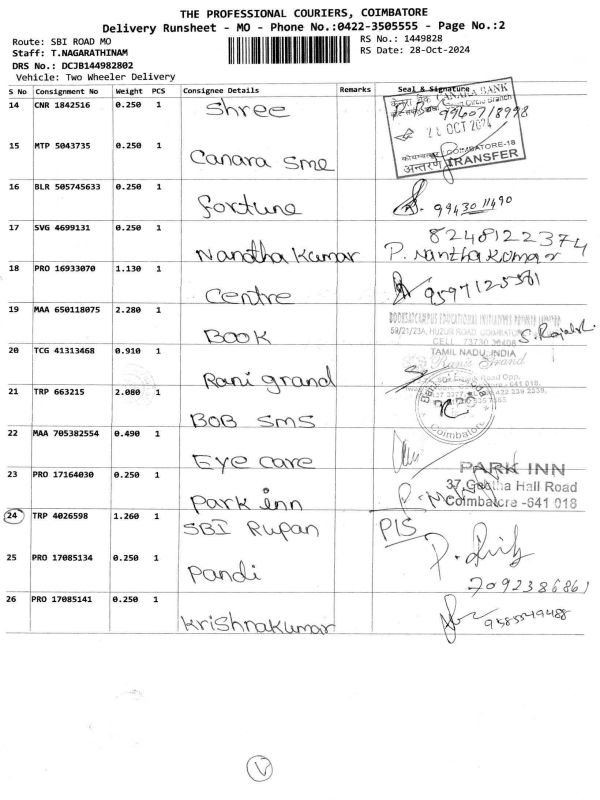 THE PROFESSIONAL COURIERS, COIMBATORE
Delivery Runsheet - MO - Phone No.:0422-3505555 - Page No.:2
Route: SBI ROAD MO RS No.: 1449828
Staff: T.NAGARATHINAM RS Date: 28-Oct-2024
DRS No.: DCJB144982802
Vehicle: Two Wheeler Delivery
S No Consignment No Weight PCS Consignee Details Remarks Seal & Signature
14 CNR 1842516 0.250 1 Shree
CANARA BANK
28 OCT 2024
15 MTP 5043735 0.250 1 Canara sme
COIMBATORE-18
अन्तरण TRANSFER
16 BLR 505745633 0.250 1 fortune 99430 11490
17 SVG 4699131 0.250 1 Nandha Kumar 8248122374
P. Nantha Kumar
18 PRO 16933070 1.130 1 Centre 9597125581
19 MAA 650118075 2.280 1 BOOK
59/21/23A, HUZUR ROAD, COIMBATORE
CELL 73730 36408
TAMIL NADU, INDIA
20 TCG 41313468 0.910 1 Rani grand
Rani Grand
21 TRP 663215 2.080 1 BOB sms
Coimbatore
22 MAA 705382554 0.490 1 Eye care
23 PRO 17164030 0.250 1 Park inn
PARK INN
37, Geetha Hall Road
Coimbatore -641 018
24 TRP 4026598 1.260 1 SBI Rupan
25 PRO 17085134 0.250 1 Pandi
7092386861
26 PRO 17085141 0.250 1 Krishnakumar
9585549488
V